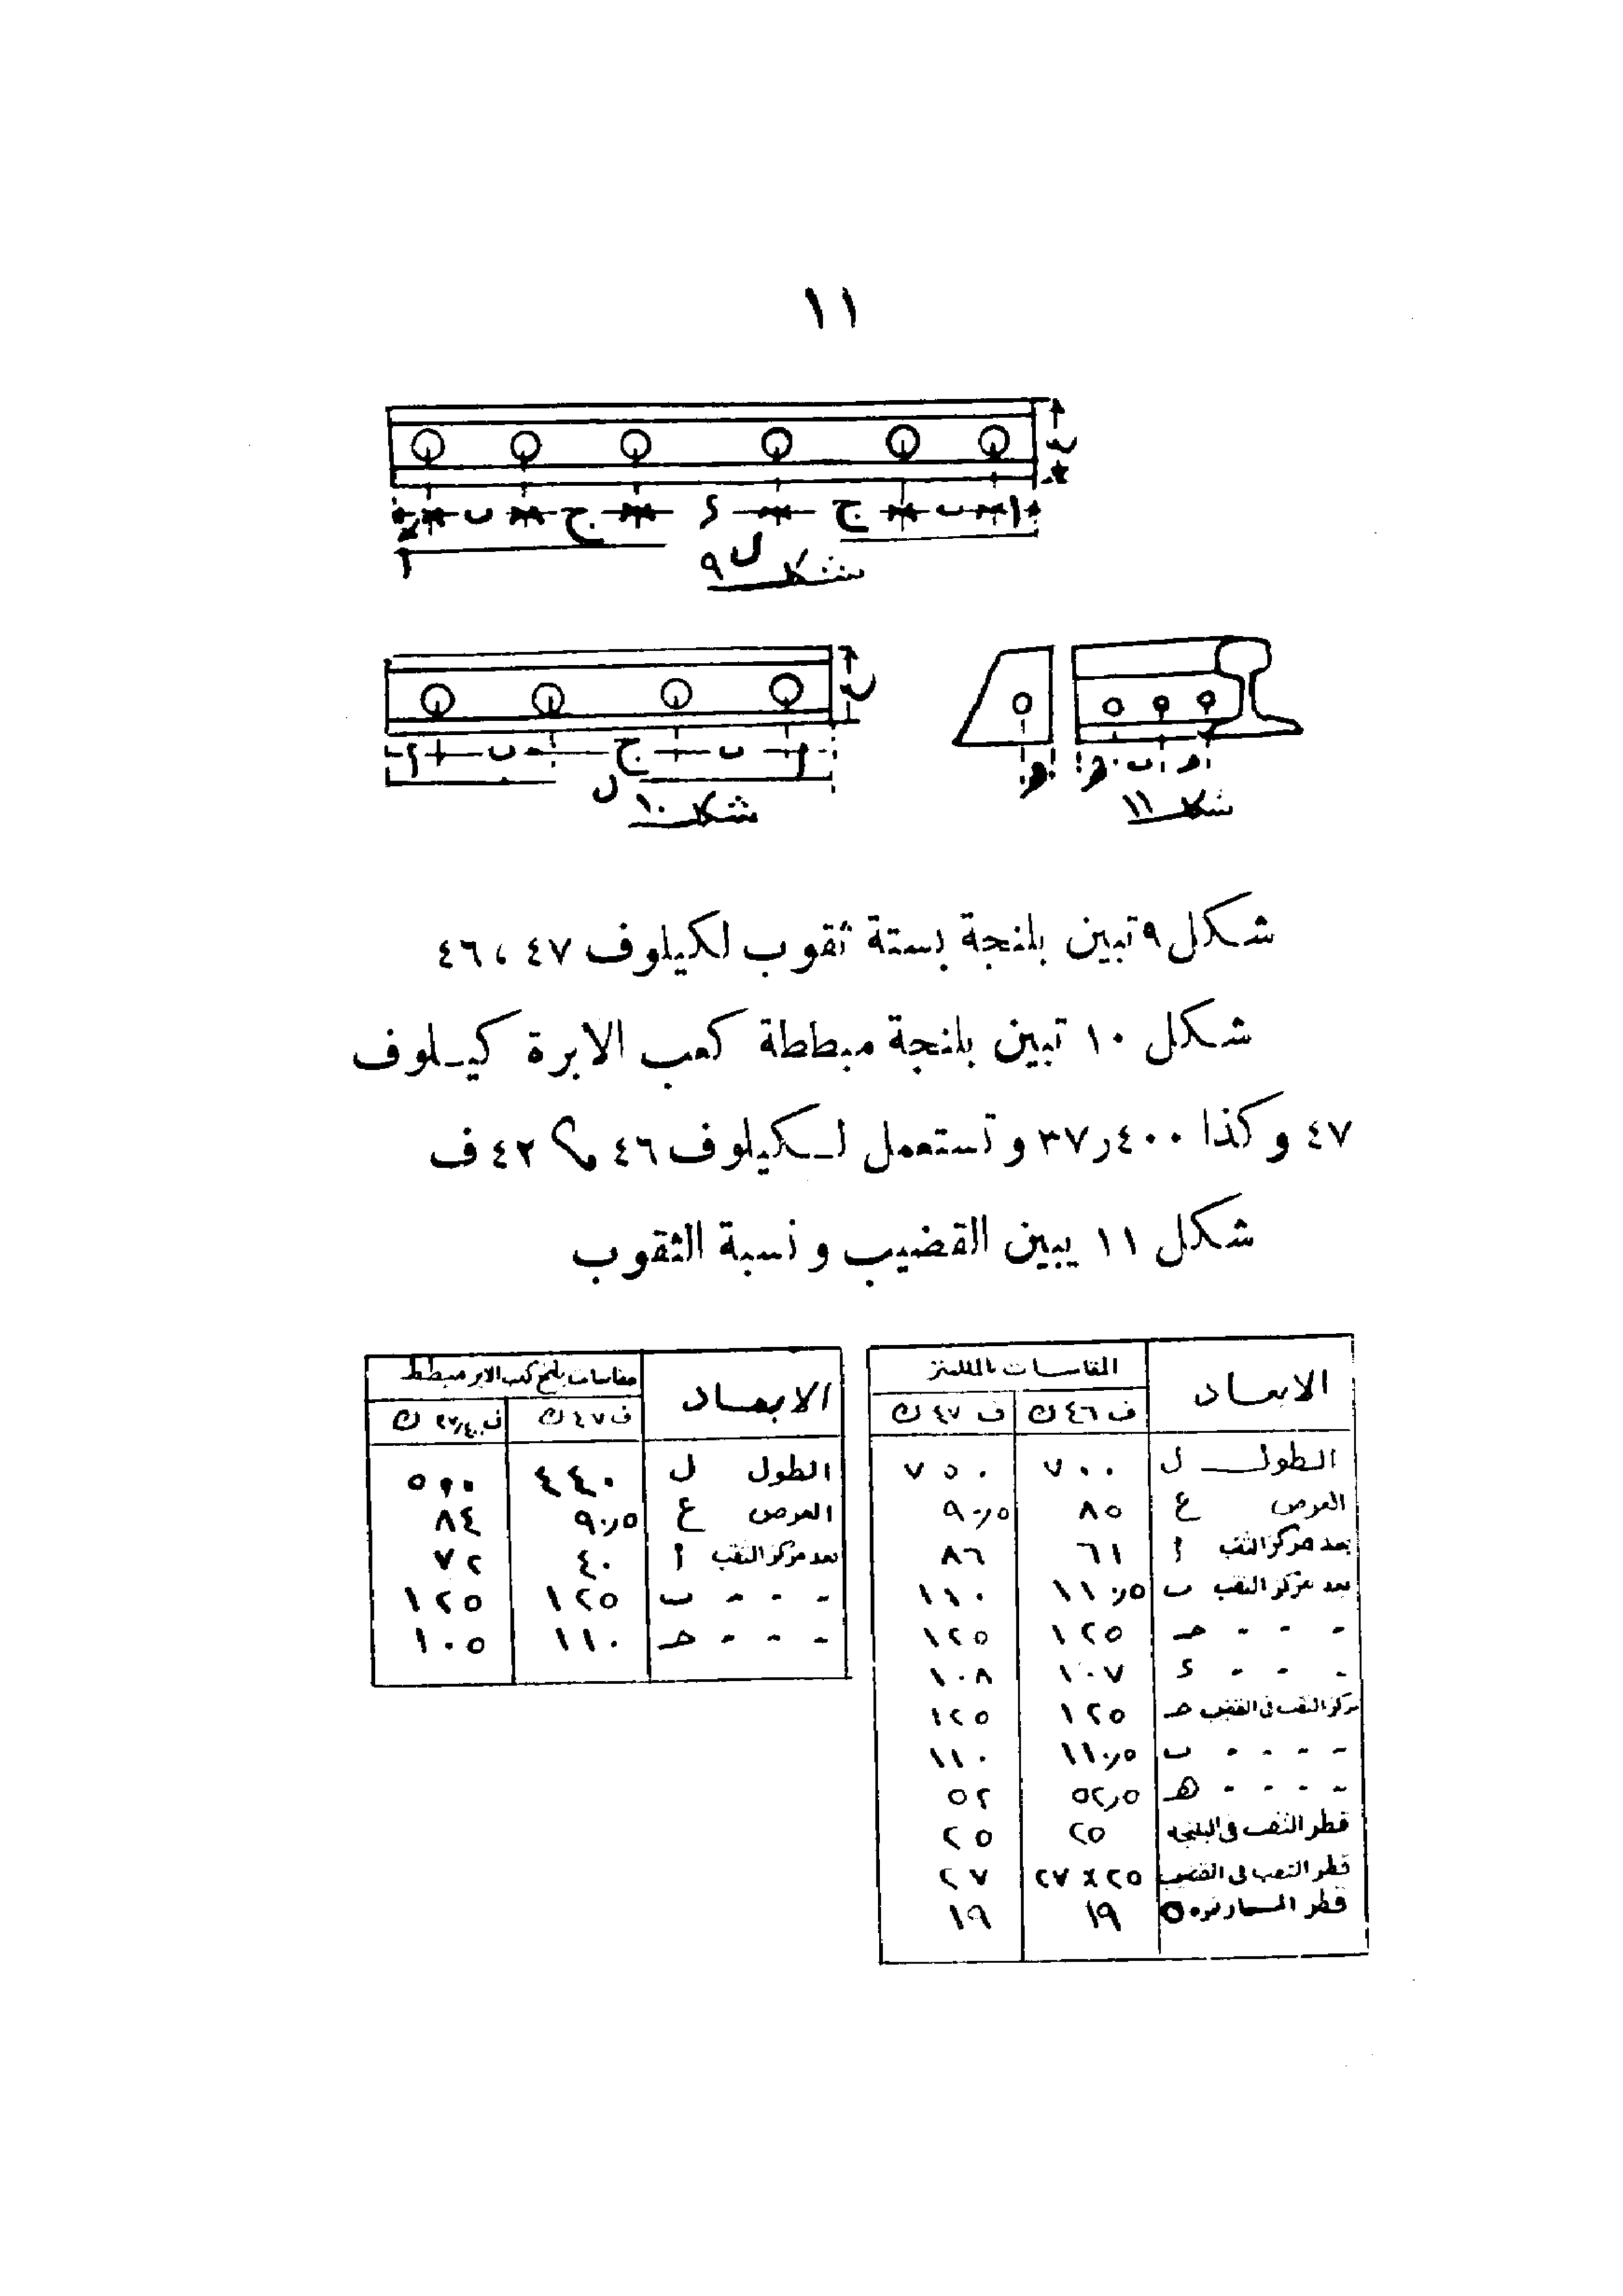 ١١
ع
ا ب ج د ج ب ا
ل
شكل ٩
ع
ا ب ج ب أ
ل
شكل ١٠
هـ هـ ب حـ
شكل ١١
شكل ٩ تبين بلنجة بستة ثقوب لكيلوف ٤٧ ، ٤٦
شكل ١٠ تبين بلنجة مبططة كعب الابرة كيلوف
٤٧ وكذا ٤٠٠ر٣٧ وتستعمل لكيلوف ٤٦ ، ٤٢ ف
شكل ١١ يبين القضيب ونسبة الثقوب
الابعاد المقاسات بالملليمتر
ف ٤٦ ك ف ٤٧ ك
الطول ل ٧٠٠ ٧٥٠
العرض ع ٨٥ ٩٠٫٥
بعد مركز الثقب أ ٦١ ٨٦
بعد مركز الثقب ب ١١٠٫٥ ١١٠
- - - حـ ١٢٥ ١٢٥
- - - د ١٠٧ ١٠٨
مركز الثقب فى القضيب حـ ١٢٥ ١٢٥
- - - - ب ١١٠٫٥ ١١٠
- - - - هـ ٥٢٫٥ ٥٢
قطر الثقب فى البلنجه ٢٥ ٢٥
قطر الثقب فى القضيب ٢٥ × ٢٧ ٢٧
قطر المسمار ١٩ ١٩
الابعاد مقاسات بلنج كعب الابر مبطط
ف ٤٧ ك ف ٣٧٫٤٠٠ ك
الطول ل ٤٤٠ ٥٠٠
العرض ع ٩٠٫٥ ٨٤
بعد مركز الثقب أ ٤٠ ٧٢
- - - ب ١٢٥ ١٢٥
- - - حـ ١١٠ ١٠٥